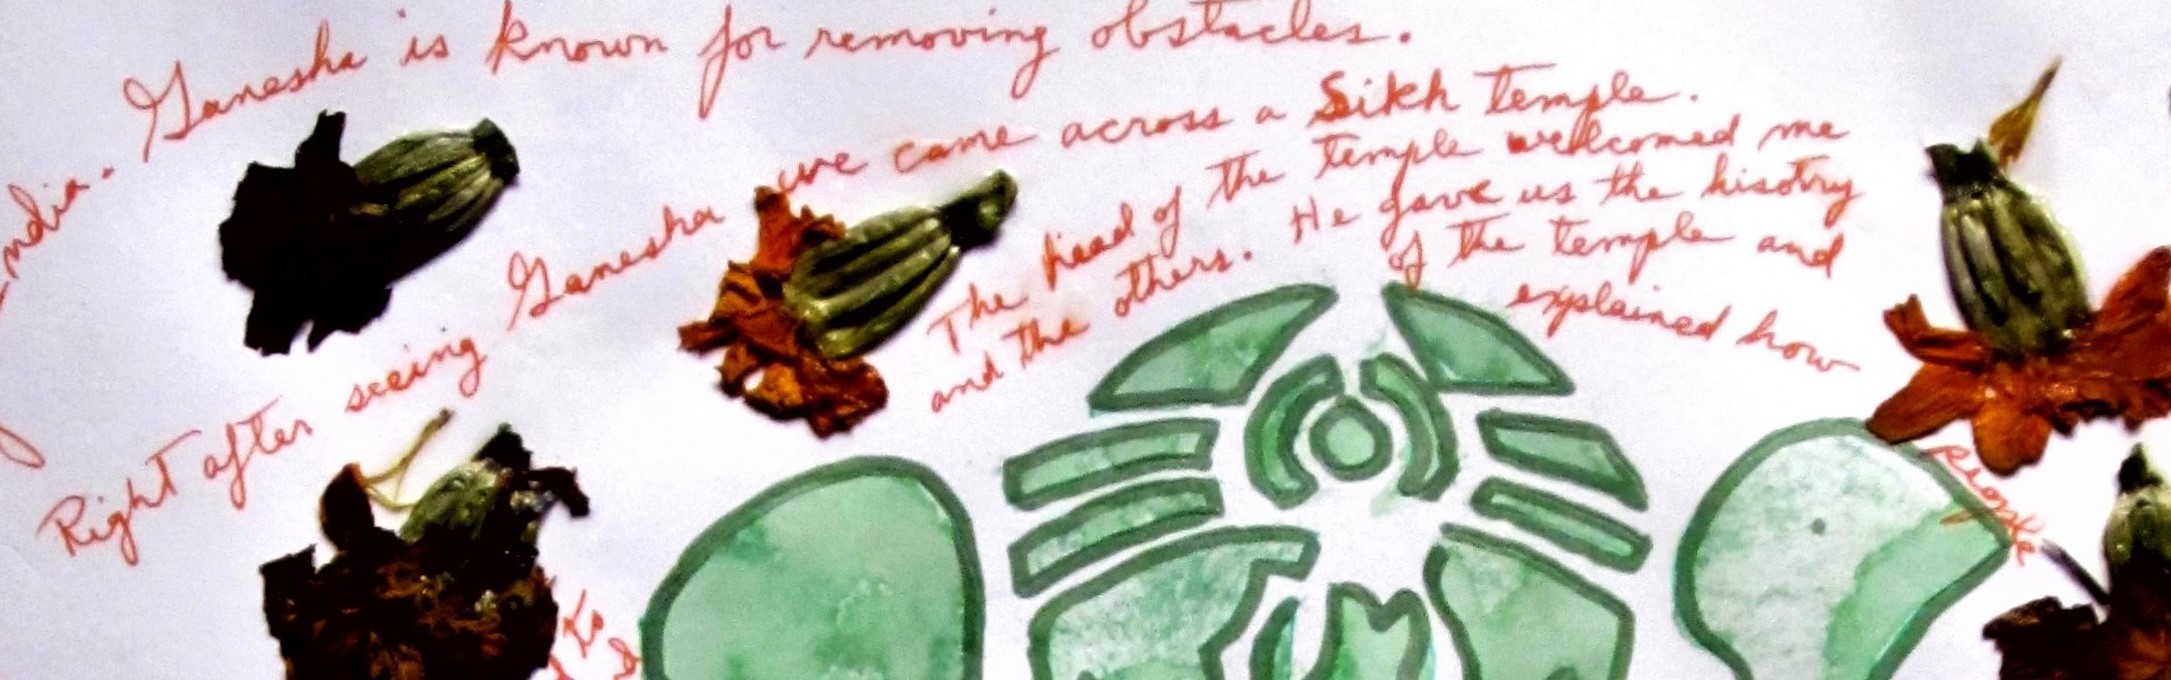 ndia. Ganesha is known for removing obstacles.
Right after seeing Ganesha we came across a Sikh temple.
The head of the temple welcomed me
and the others. He gave us the hisotry
of the temple and
explained how
people
to